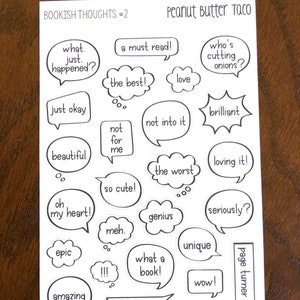 BOOKISH THOUGHTS #2
PEANUT BUTTER TACO
what
just
happened?
a must read!
who's
cutting
onions?
the best!
love
just okay
not
for
me
not into it
brilliant
beautiful
the worst
loving it!
so cute!
oh
my heart!
genius
seriously?
meh.
unique
epic
!!!
what a
book!
page turner
wow!
amazing